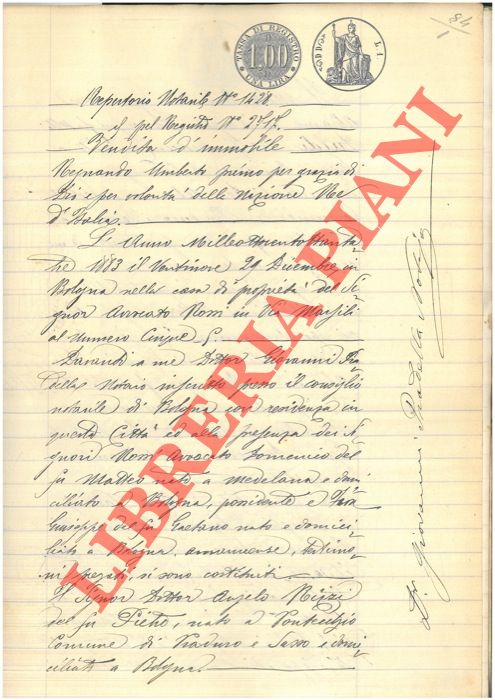 TASSA DI REGISTRO
1.00
UNA LIRA
L 1
Repertorio Notarile N° 1428
Vendita d'immobile
Regnando Umberto primo per grazia di
Dio e per volontà della Nazione Re
d'Italia.
L'Anno Milleottocentottanta
tre 1883 il Ventinove 29 Dicembre, in
Bologna nella casa di proprietà del Si
gnor Avvocato Rossi in Via Marsili
al numero Cinque 5.
Davanti a me Dottor Giovanni Pra
della Notaio inscritto presso il consiglio
notarile di Bologna con residenza in
questa Città ed alla presenza dei Si
gnori Rossi Avvocato Domenico del
fu Matteo nato a Medelana e domi
ciliato a Bologna, possidente e
Giuseppe del fu Gaetano nato e domici
liato a Bologna, ammanuense, testimo
ni pregati, si sono costituiti.
Il Signor Dottor Angelo Rizzi
del fu Pietro, nato a Pontecchio
Comune di Praduro e Sasso e domi
ciliato a Bologna.
Dr. Giovanni Pradella Notajo
LIBRERIA PIANI